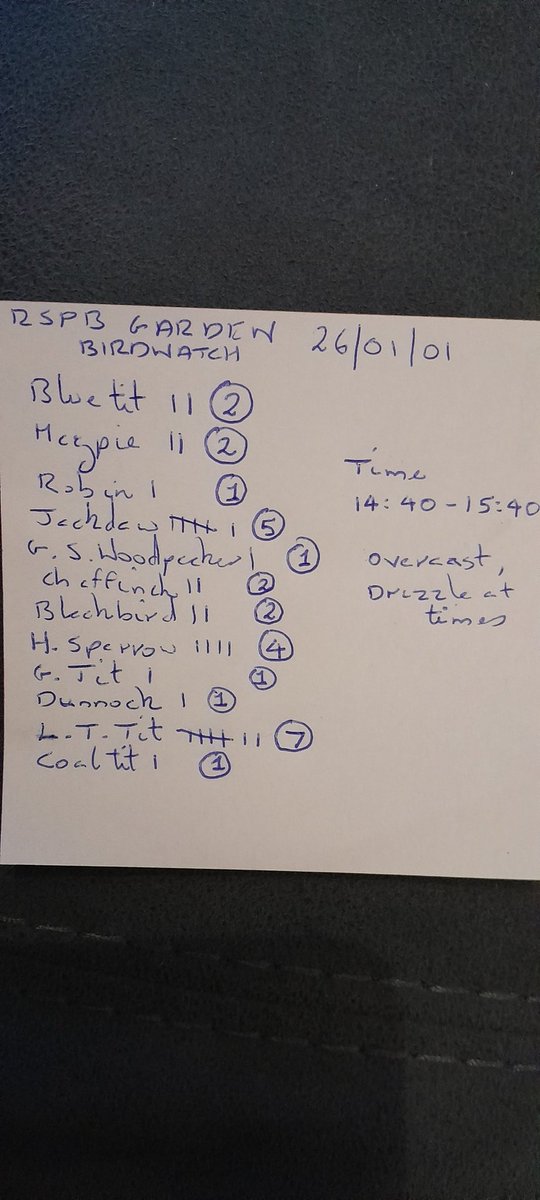 RSPB GARDEN
BIRDWATCH
26/01/01
Bluetit II 2
Magpie II 2
Robin I 1
Jackdaw IIII I 5
G. S. Woodpecker I 1
Chaffinch II 2
Blackbird II 2
H. Sparrow IIII 4
G. Tit I 1
Dunnock I 1
L. T. Tit IIII II 7
Coal tit I 1
Time
14:40-15:40
Overcast,
Drizzle at
times